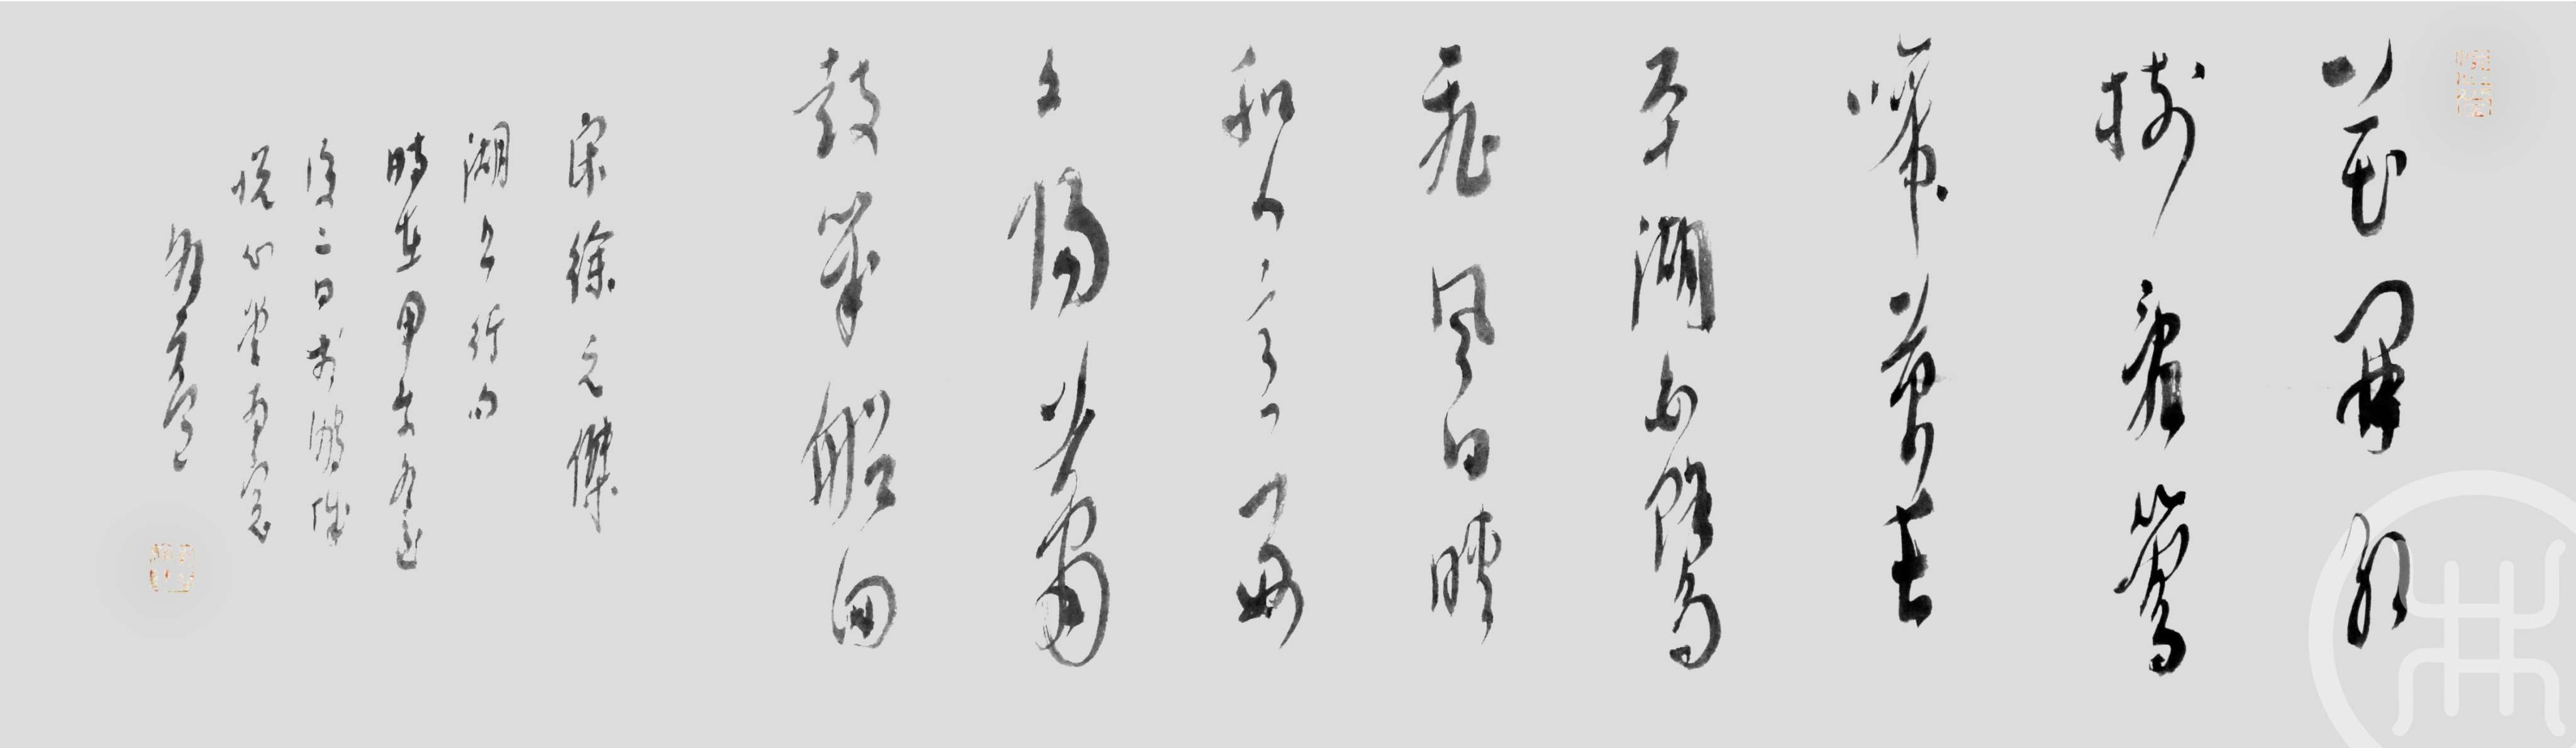 花開紅
樹亂鶯
啼草長
平湖白鷺
飛風日晴
和人意好
夕陽簫
鼓幾船回
宋徐元傑
湖上行句
時在甲午冬至
後二日於鵬城
悦心堂南窗